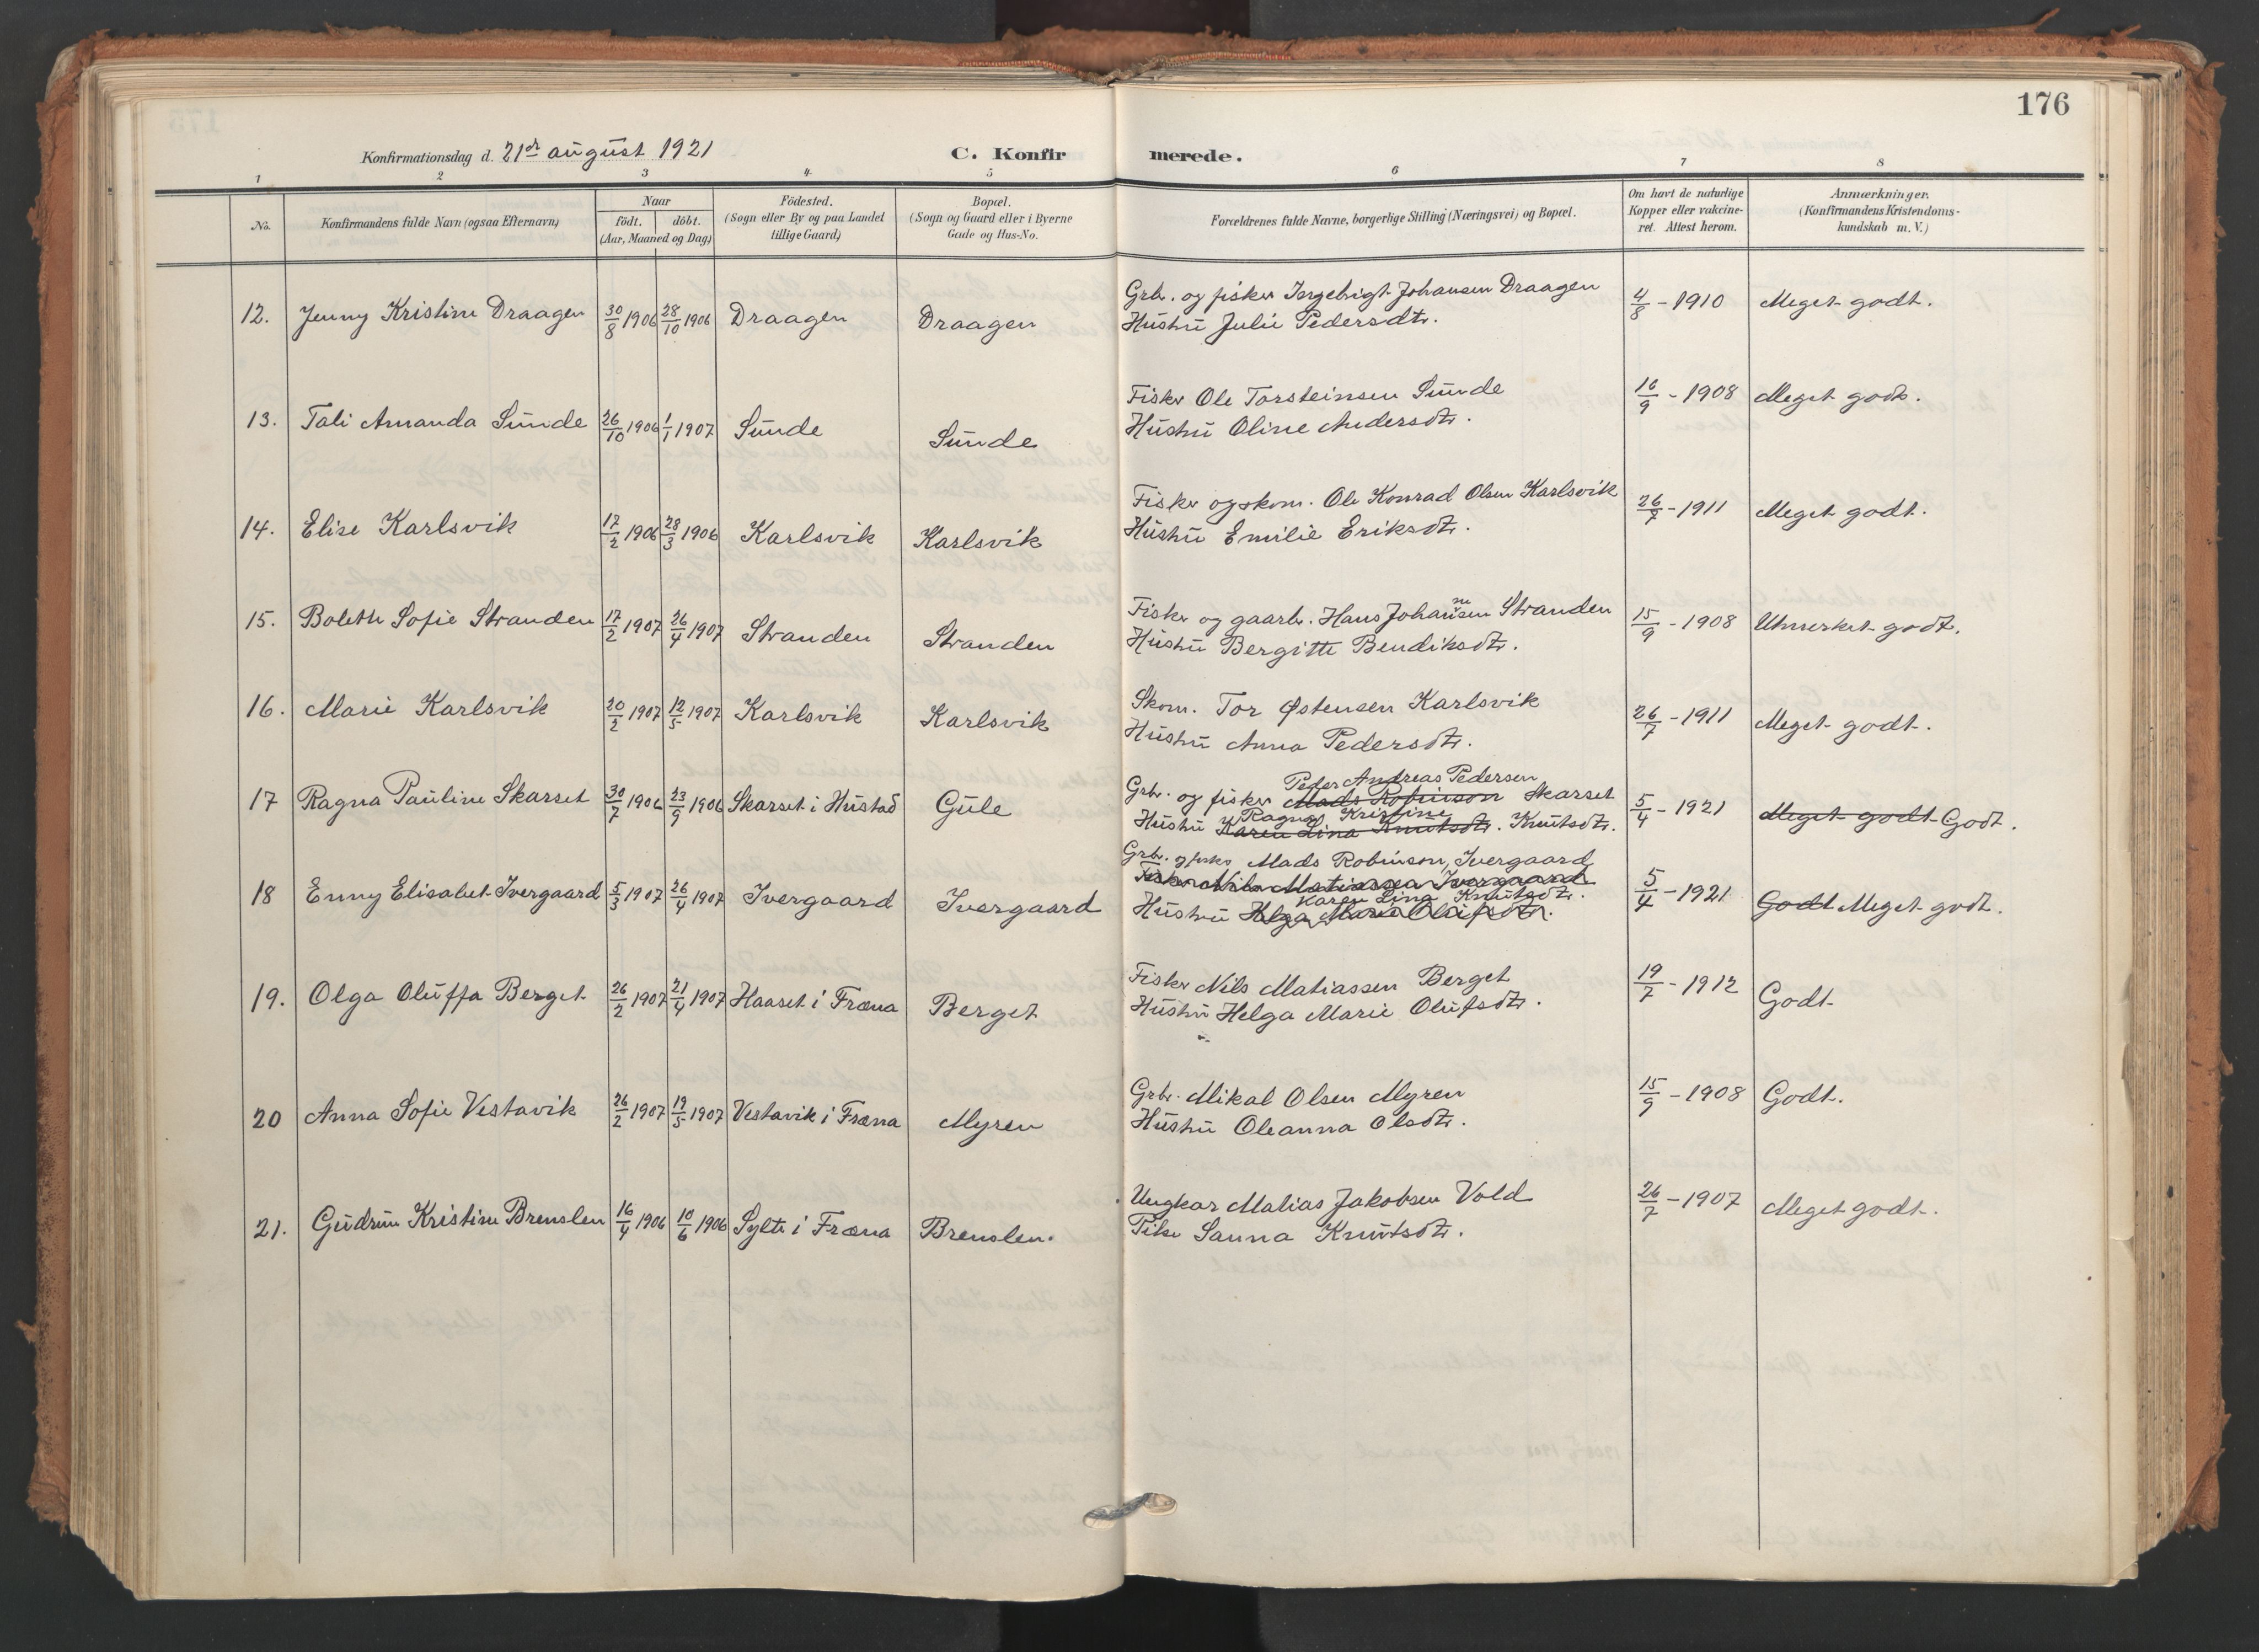 176
Konfirmationsdag d. 21de august 1921
C. Konfir merede.
1 2 3 4 5 6 7 8
No.
Konfirmandens fulde Navn (ogsaa Efternavn)
Naar
födt. döbt.
(Aar, Maaned og Dag)
Födested.
(Sogn eller By og paa Landet
tillige Gaard)
Bopæl.
(Sogn og Gaard eller i Byerne
Gade og Hus-No.
Forældrenes fulde Navne, borgerlige Stilling (Næringsvei) og Bopæl.
Om havt de naturlige
Kopper eller vakcine-
ret. Attest herom.
Anmærkninger.
(Konfirmandens Kristendoms-
kundskab m. V.)
12. Jenny Kristine Draagen 30/8 1906 28/10 1906 Draagen Draagen
Grbr. og fisker Ingebrigt Johansen Draagen
Hustru Julie Pedersdtr.
4/8 - 1910 Meget godt.
13. Tali Amanda Sunde 26/10 1906 1/1 1907 Sunde Sunde
Fisker Ole Torsteinsen Sunde
Hustru Oline Andersdtr.
16/9 - 1908 Meget godt.
14. Elise Karlsvik 17/2 1906 28/3 1906 Karlsvik Karlsvik
Fisker og skom. Ole Konrad Olsen Karlsvik
Hustru Emilie Eriksdtr.
26/7 - 1911 Meget godt.
15. Boleth Sofie Stranden 17/2 1907 26/4 1907 Stranden Stranden
Fisker og gaarbr. Hans Johansen Stranden
Hustru Bergitte Bendiksdtr.
15/9 - 1908 Utmerket godt.
16. Marie Karlsvik 20/2 1907 12/5 1907 Karlsvik Karlsvik
Skom. Tor Østensen Karlsvik
Hustru Anna Pedersdtr.
26/7 - 1911 Meget godt.
17 Ragna Pauline Skarset 30/7 1906 23/9 1906 Skarset i Hustad Gule
Peder Andreas Pedersen
Grbr. og fisker Mads Robinson Skarset
Ragna Kristine
Hustru Karen Lina Knutsdtr. Knutsdtr.
5/4 - 1921 Meget godt Godt.
18 Enny Elisabet Ivergaard 5/3 1907 26/4 1907 Ivergaard Ivergaard
Grbr. og fisker Mads Robinson, Ivergaard
Fisker Nils Matiassen Ivergaard
Karen Lina Knutsdtr.
Hustru Helga Marie Olufsdtr.
5/4 - 1921 Godt Meget godt.
19. Olga Oluffa Berget 26/2 1907 21/4 1907 Haaset i Fræna Berget
Fisker Nils Matiassen Berget
Hustru Helga Marie Olufsdtr.
19/7 - 1912 Godt
20 Anna Sofie Vestavik 26/2 1907 19/5 1907 Vestavik i Fræna Myren
Grbr. Mikal Olsen Myren
Hustru Oleanna Olsdtr.
15/9 - 1908 Godt.
21. Gudrun Kristine Brenslen 16/4 1906 10/6 1906 Sylte i Fræna Brenslen.
Ungkar Matias Jakobsen Vold
Pike Sanna Knutsdtr.
26/7 - 1907 Meget godt.